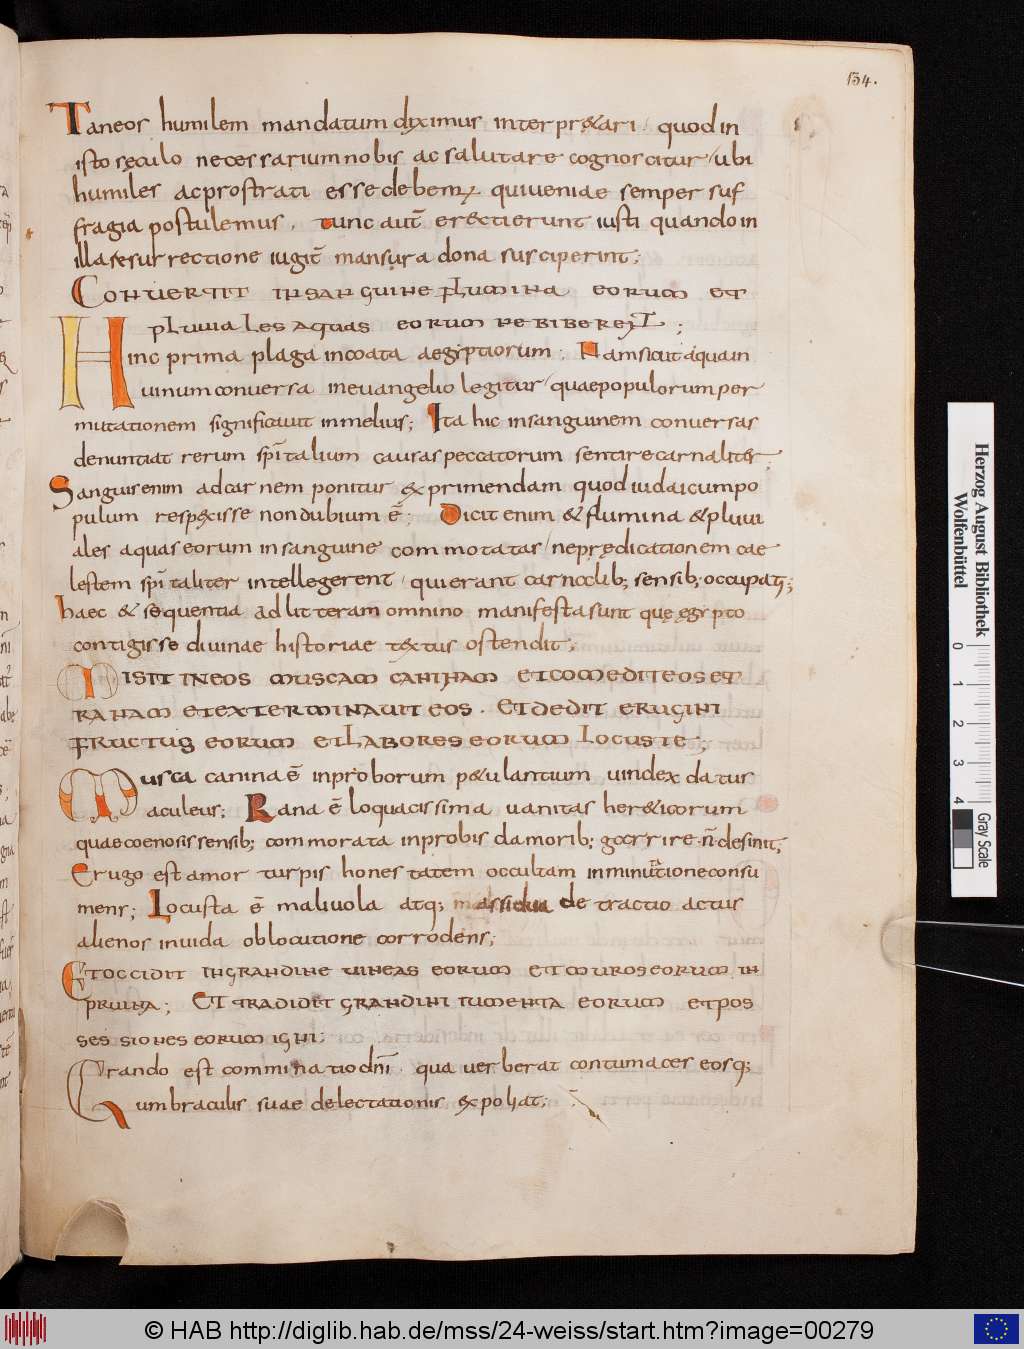 134.
Taneos humilem mandatum diximus interpr&ari · quod in
isto sęculo necessarium nobis ac salutare cognoscitur / ubi
humiles ac prostrati esse debem; qui veniae semper suf
fragia postulemus . tunc aut̄ er&ctierunt iusti quando in
illa resurrectione iugit̄ mansura dona susciperint;
CONVERTIT IN SANGUINE FLUMINA EORUM ET
PLUVIALES AQUAS EORUM NE BIBERENT;
Hinc prima plaga incoata aegyptiorum . Nam sicut aqua in
vinum conversa in evangelio legitur / quae populorum per
mutationem significavit in melius; Ita hic in sanguinem conversas
denuntiat rerum spītalium causas peccatorum sentire carnaliter.
Sanguis enim ad carnem ponitur exprimendam quod iudaicum po
pulum respexisse non dubium ē. Dicit enim & flumina & pluvi
ales aquas eorum in sanguine commotatas / ne prędicationem cae
lestem spītaliter intellegerent / qui erant carnalib; sensib; occupati;
haec & sequentia ad litteram omnino manifesta sunt quę ęgypto
contigisse divinae historiae textus ostendit;
MISIT IN EOS MUSCAM CANINAM ET COMEDIT EOS ET
RANAM ET EXTERMINAVIT EOS . ET DEDIT ERUGINI
FRUCTUS EORUM ET LABORES EORUM LOCUSTE;
Musca canina ē inproborum p&ulantium vindex datus
aculeus; Rana ē loquacissima vanitas her&icorum
quae coenosis sensib; commorata inprobis damorib; garrire n̄ desinit;
Erugo est amor turpis honestatem occultam in minutione consu
mens; Locusta ē malivola atq; assidua detractio actus
alienos invida oblocutione corrodens;
ET OCCIDIT IN GRANDINE VINEAS EORUM ET MUROS EORUM IN
PRUINA; ET TRADIDIT GRANDINI IUMENTA EORUM ET POS
SESSIONES EORUM IGNI;
Grando est comminatio dnī . qua verberat contumaces eosq;
umbraculis suae delectationis expoliat;
Herzog August Bibliothek
Wolfenbüttel
0 1 2 3 4
Gray Scale
© HAB http://diglib.hab.de/mss/24-weiss/start.htm?image=00279